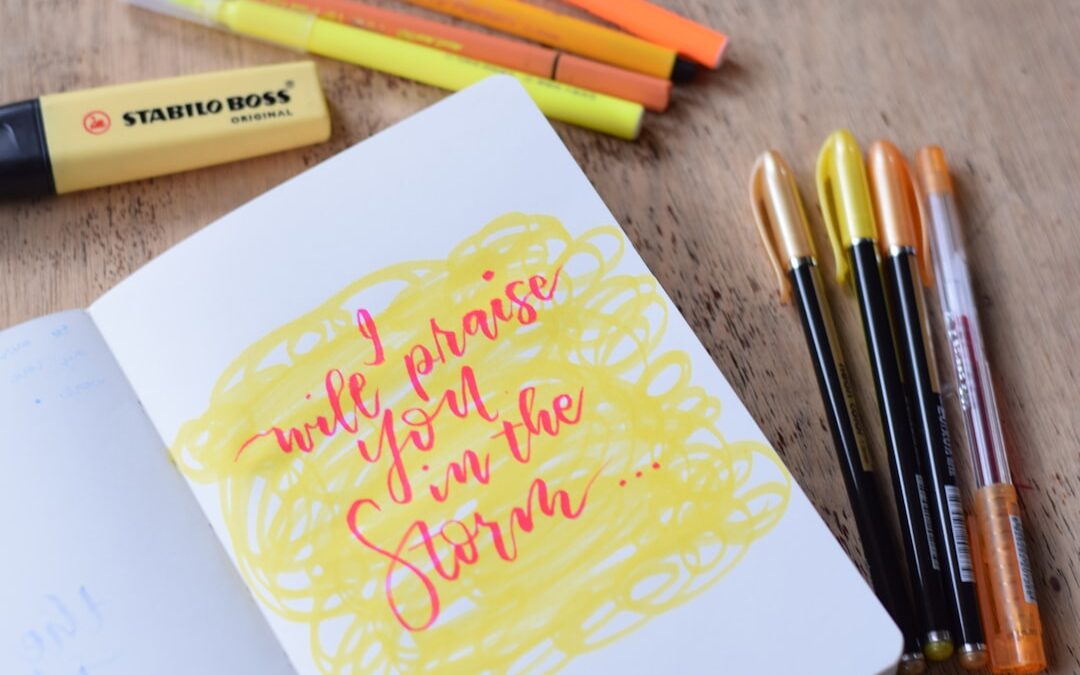 STABILO BOSS
ORIGINAL
I
will praise
you
in the
Storm...
the